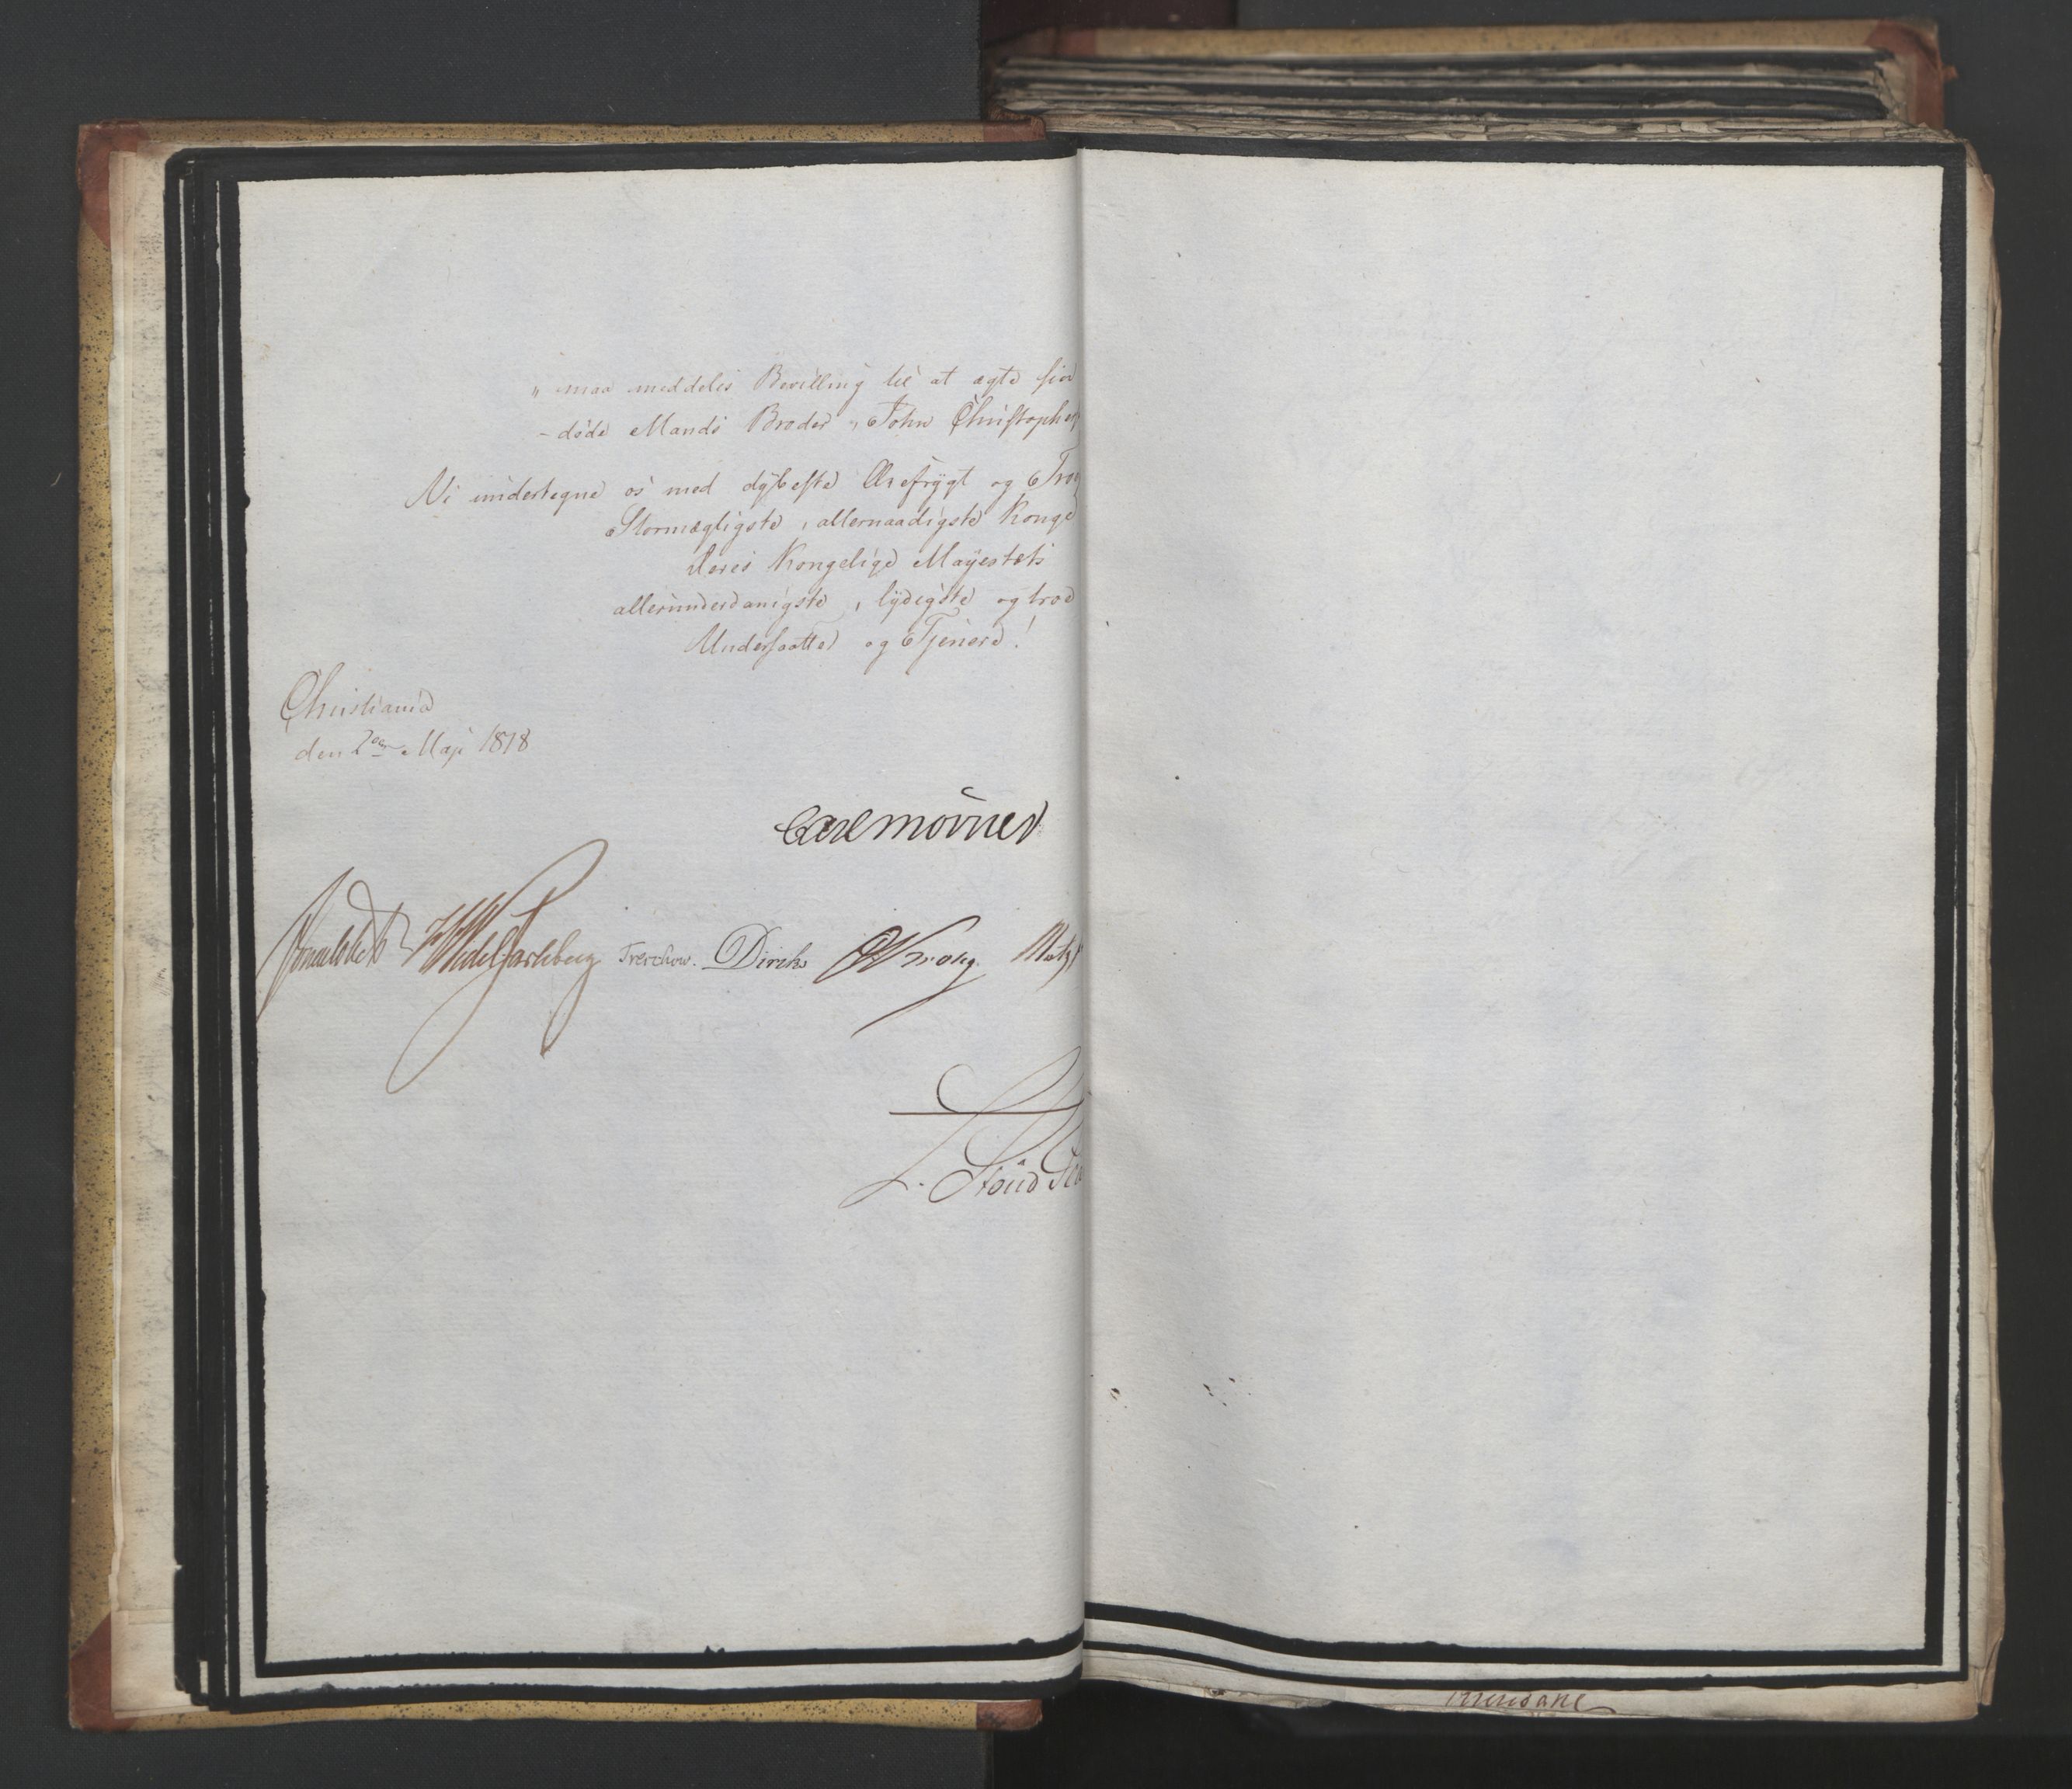 „ maa meddeles Bevilling til at ægte sin
- døde Mands Broder, John Christophers
Vi undertegne os med dybeste Ærefrygt og Tro
Stormægtigste, allernaadigste Konge
Deres Kongelige Mayestæts
allerunderdanigste, lydigste og troe
Undersaatter og Tjenere!
Christiania
den 2den Maji 1818
Carl Mörner
Sommerhielm HWedelJarlsberg Treschow. Dirchs Krohg. Motzf
L. Stoud Pla